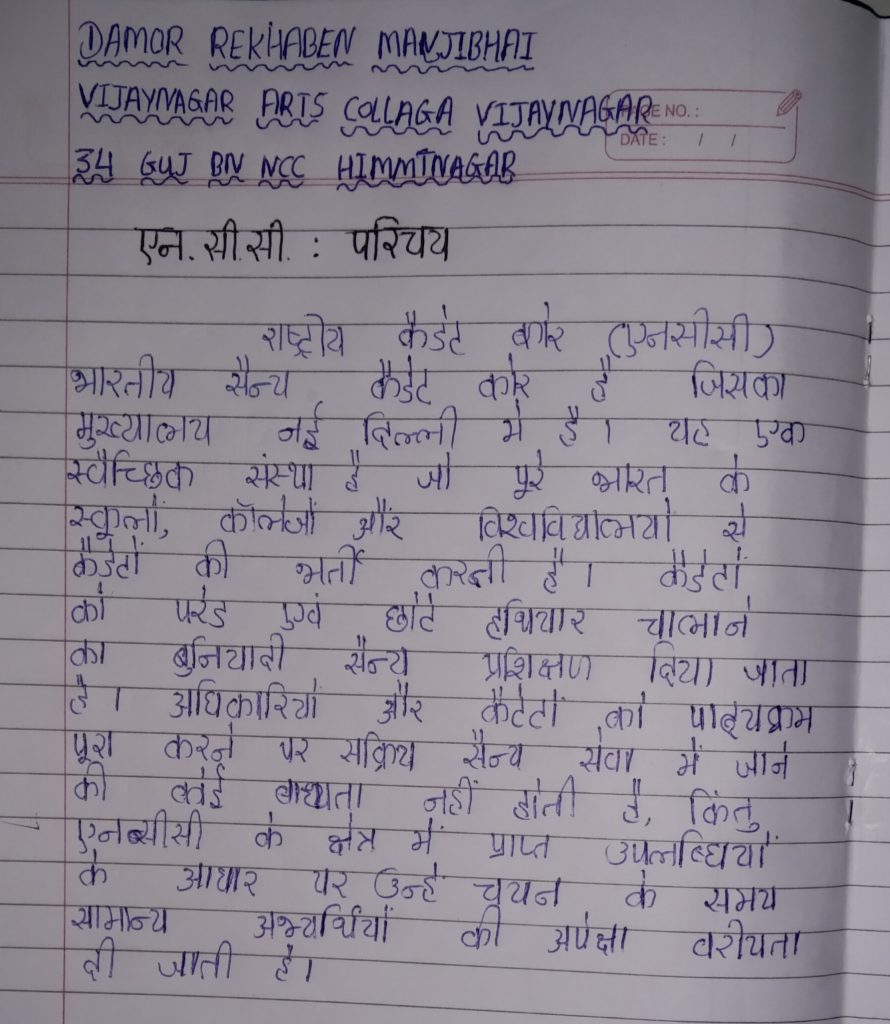 DAMOR REKHABEN MANJIBHAI
VIJAYNAGAR ARTS COLLAGA VIJAYNAGAR
PAGE NO. :
DATE : / /
34 GUJ BN NCC HIMMTNAGAR
एन. सी.सी. : परिचय
राष्ट्रीय कैडेट कोर (एनसीसी)
भारतीय सैन्य कैडेट कोर है जिसका
मुख्यालय नई दिल्ली मे है । यह एक
स्वैच्छिक संस्था है जो पूरे भारत के
स्कूलों, कॉलेजों और विश्वविद्यालयों से
कैडेटों की भर्ती करती है । कैडेटों
को परेड एवं छोटे हथियार चालाने
का बुनियादी सैन्य प्रशिक्षण दिया जाता
है । अधिकारियों और कैटेटों को पाठ्यक्रम
पूरा करने पर सक्रिय सैन्य सेवा में जाने
की कोई बाध्यता नहीं होती है, किंतु
एनसीसी के क्षेत्र में प्राप्त उपलब्धियों
के आधार पर उन्हे चयन के समय
सामान्य अभ्यर्थियों की अपेक्षा वरीयता
दी जाती है ।